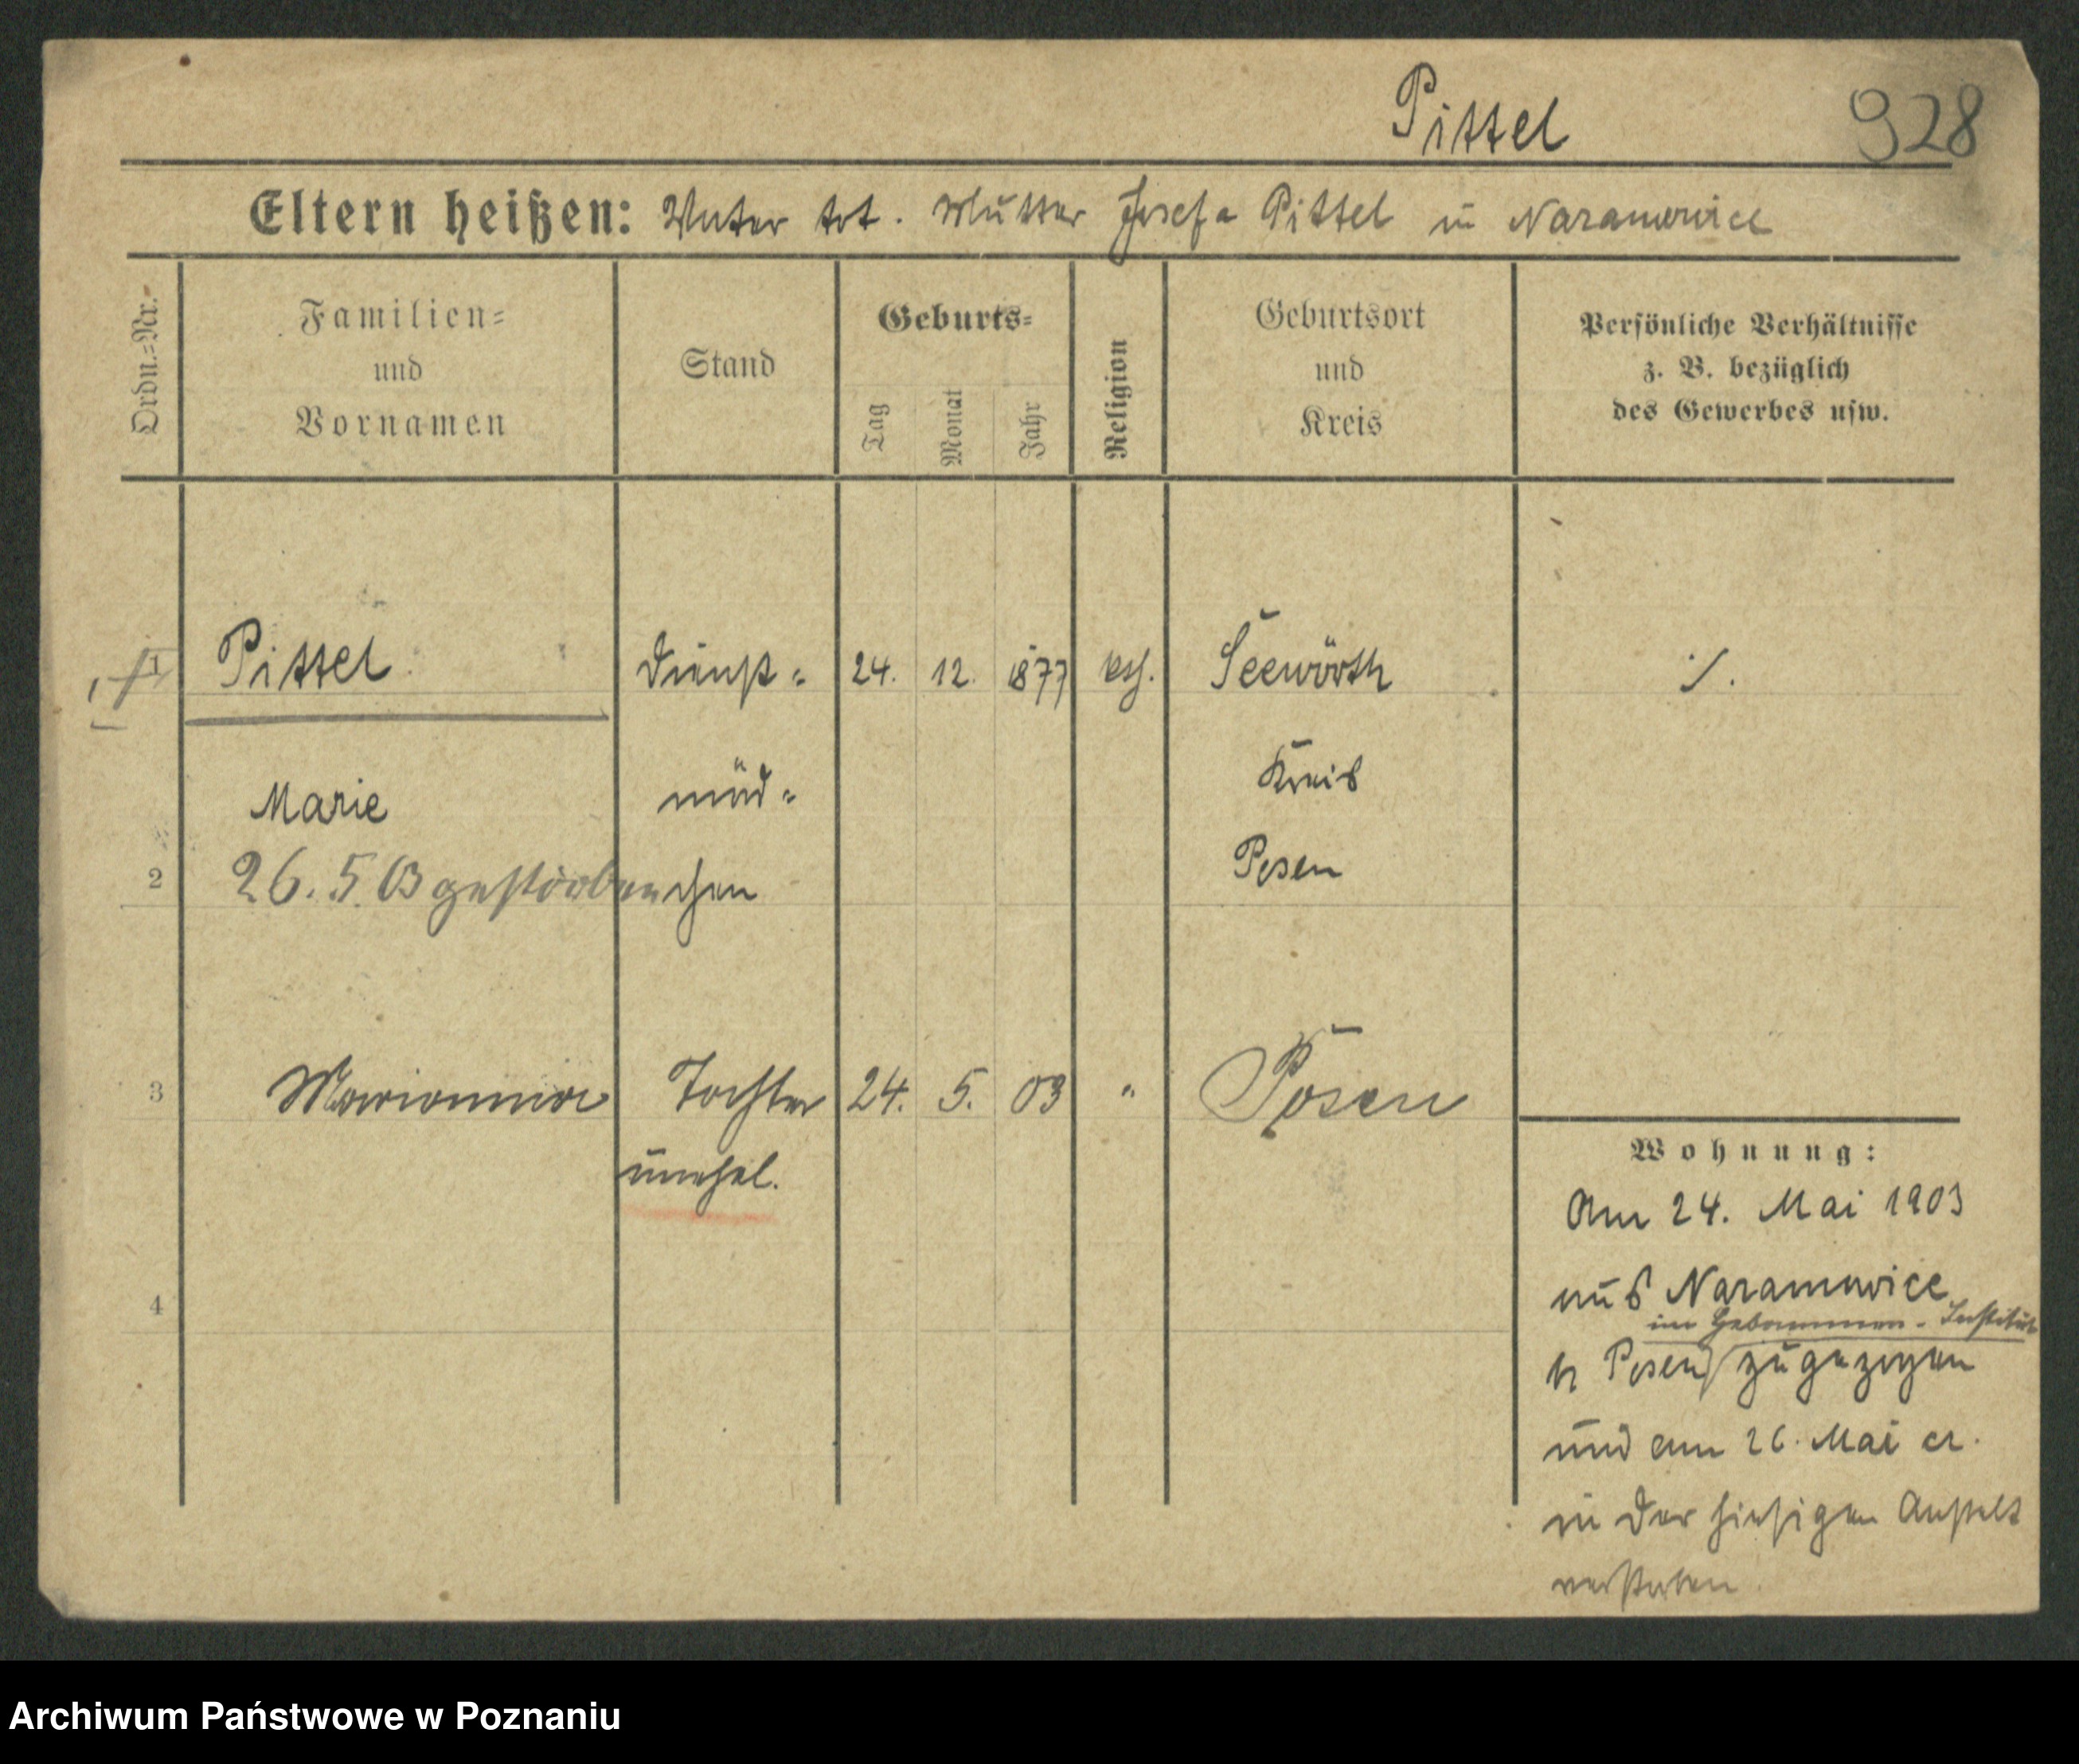 Pittel 928
Eltern heißen: Vater tot. Mutter Josefa Pittel in Naramowice
Ordn.=Nr.
Familien=
und
Vornamen
Stand
Geburts=
Tag
Monat
Jahr
Religion
Geburtsort
und
Kreis
Persönliche Verhältnisse
z. B. bezüglich
des Gewerbes usw.
1 Pittel Dienst= 24. 12. 1877 kth. Seewörth ./.
Marie mäd= Kreis
2 26. 5. 03 gestorben chen Posen
3 Marianna Tochter 24. 5. 03 " Posen
unehel.
4
Wohnung:
Am 24. Mai 1903
aus Naramowice
im Hebammen-Institut
Posen zugezogen
und am 26. Mai cr.
in der hiesigen Anstalt
verstorben
Archiwum Państwowe w Poznaniu